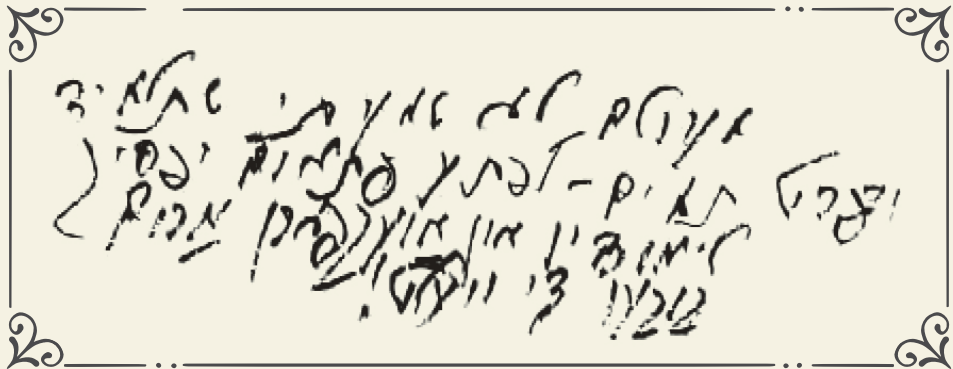 מעולם לא שמעתי שתלמיד
תמים - לפתע פתאום יפסיק
לימודיו און אוועקפארן ארום
די וועלט!